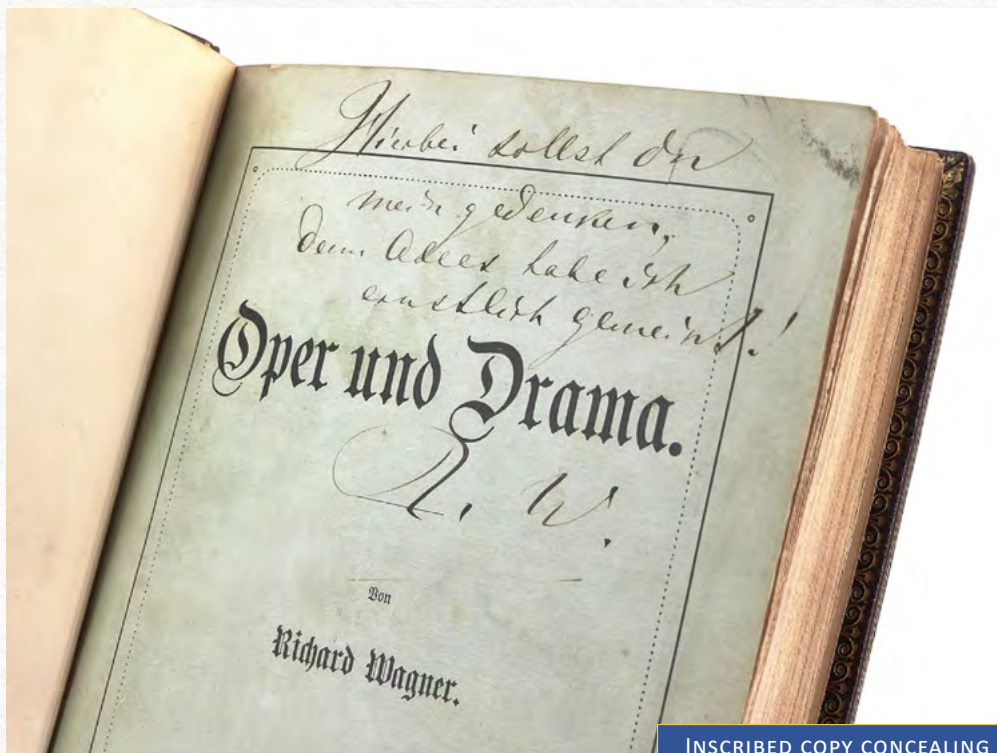 Hierbei sollst du
mein gedenken,
denn Alles habe ich
ernstlich gemeint!
Oper und Drama.
R. W.
Von
Richard Wagner.
INSCRIBED COPY CONCEALING